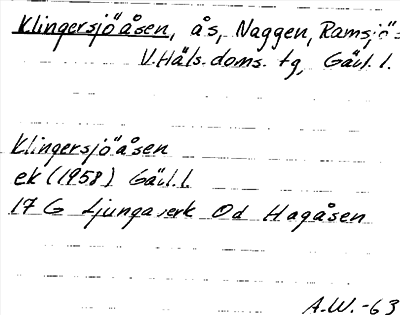 Klingersjöåsen, ås, Naggen, Ramsjö=
V. Häls. doms. tg, Gävl. l.
Klingersjöåsen
ek (1958) Gävl. l.
17 G Ljungaverk Od Hagåsen
A.W. -63